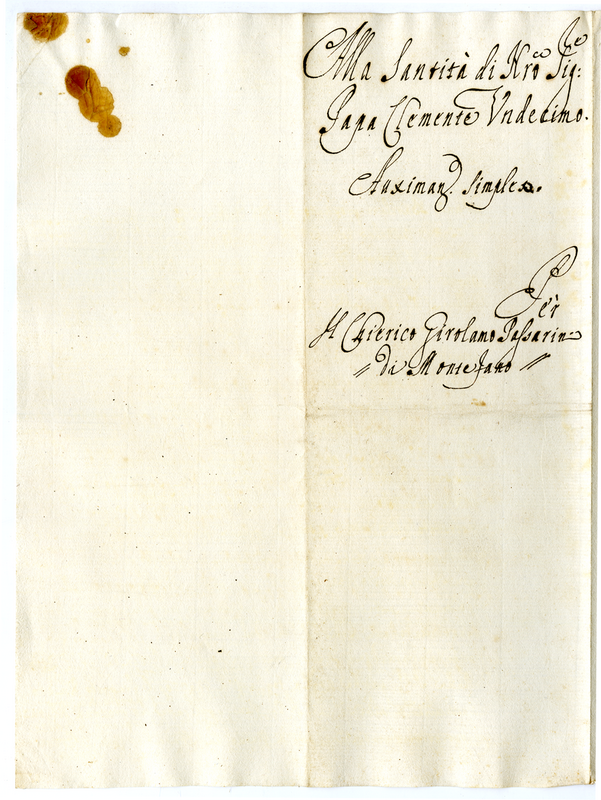 Alla Santità di Nrô Sigre:
Papa Clemente Undecimo.
Auximan. Simplex.
Per
Il Chierico Girolamo Passarin
di Montefano